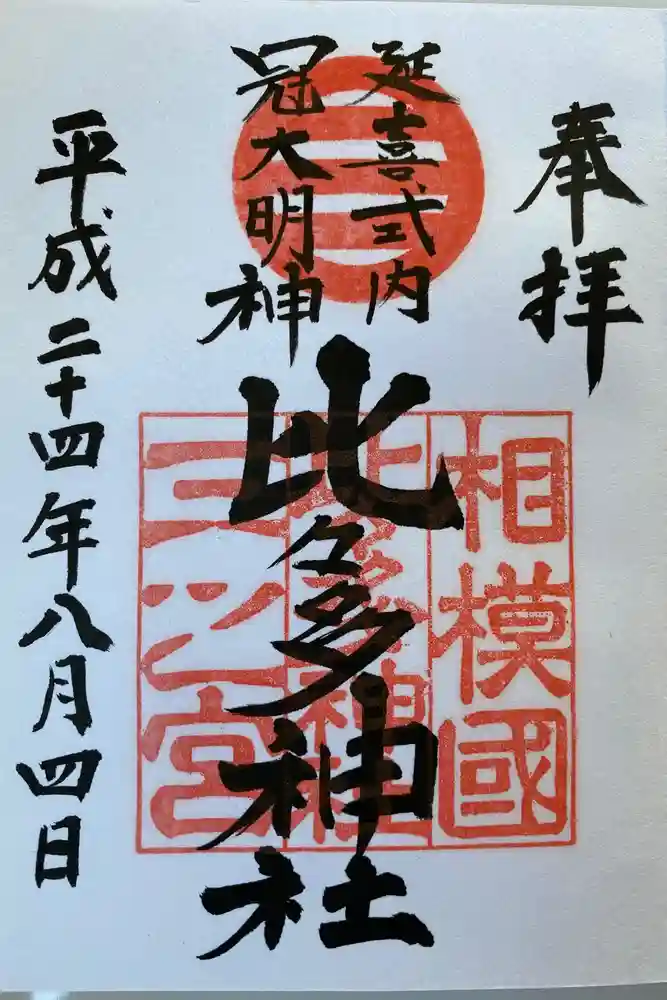 奉拝
延喜式内
冠大明神
比々多神社
平成二十四年八月四日
相模國
三之宮